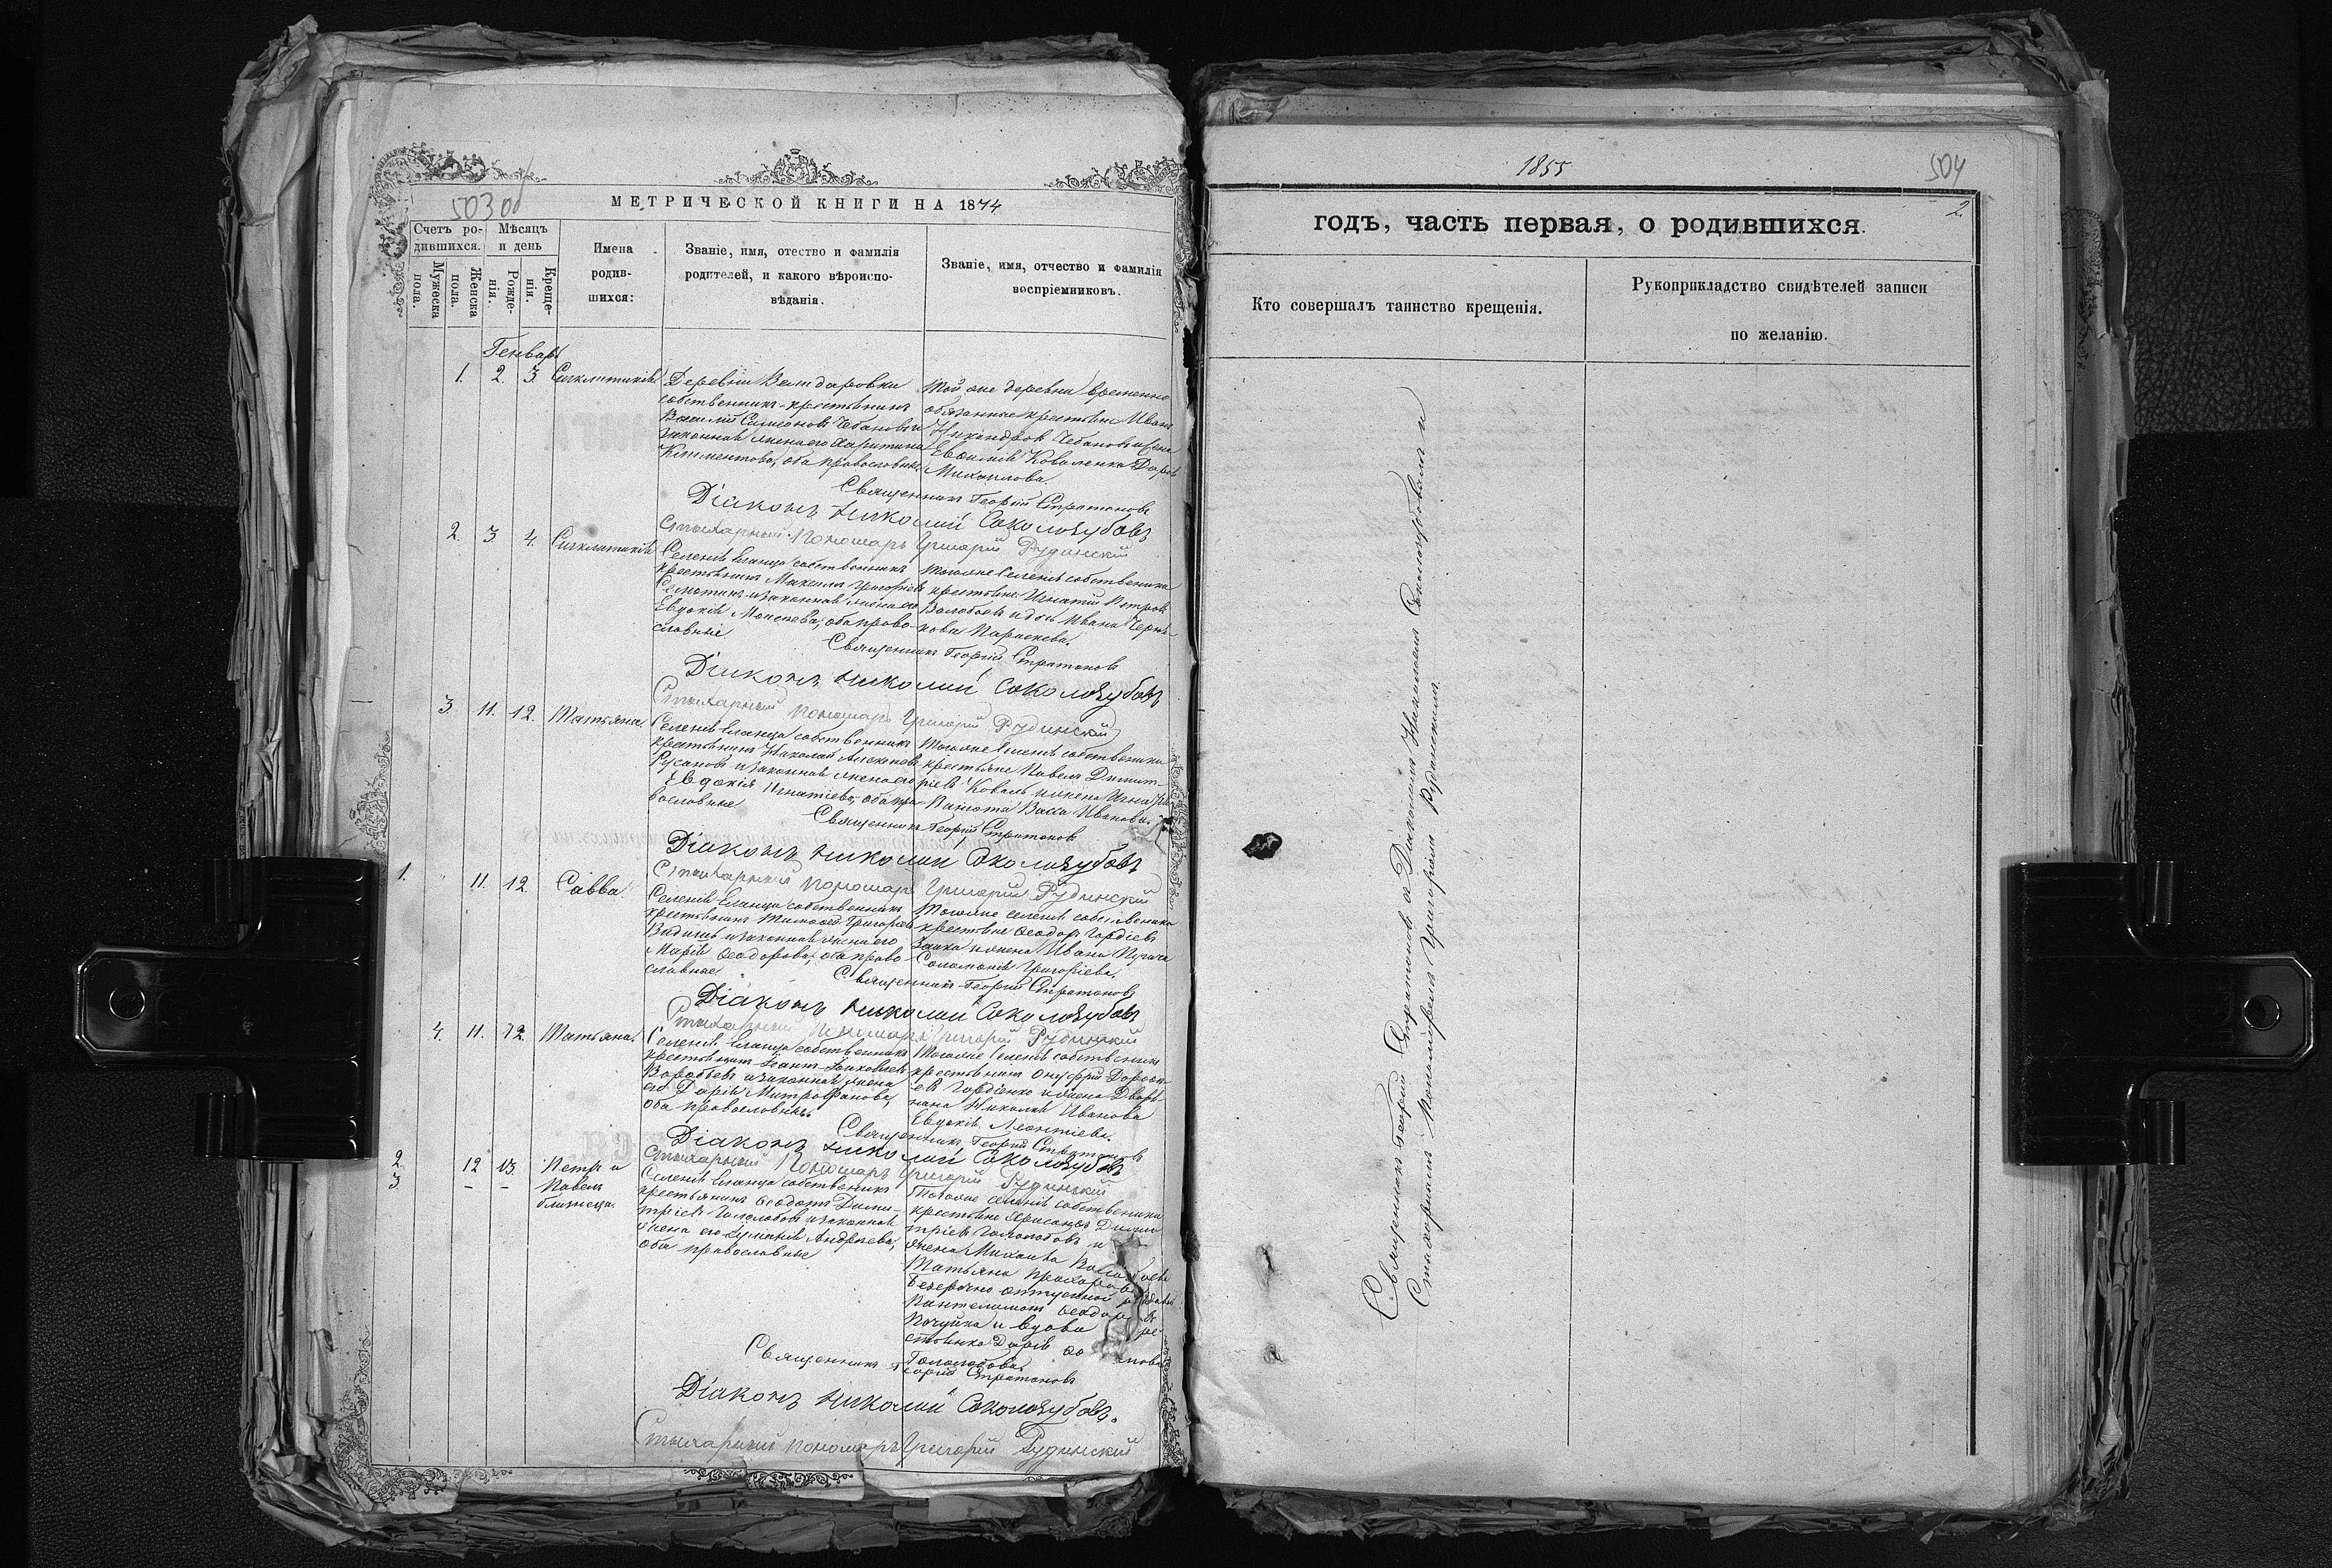 503 об
МЕТРИЧЕСКОЙ КНИГИ НА 1874
Счетъ ро-
дившихся.
Мѣсяцъ
и день
Мужеска
пола.
Женска
пола.
Рожде-
нія.
Креще-
нія.
Имена
родив-
шихся:
Званіе, имя, отество и фамилія
родителей, и какого вѣроиспо-
вѣданія.
Званіе, имя, отчество и фамилія
воспріемниковъ.
Генварь
1. 2. 3. Сигклитикія
Деревни
собственникъ-крестьянинъ
Василій Симеоновъ Чебановъ и
законная жена его Харитина
Климентова, оба православные.
Той же деревни временно
обязанные крестьяне Иванъ
Никандровъ Чебановъ и жена
Евфимія Коваленка Дарія
Михаилова.
Священникъ Георгій Стратоновъ
Діаконъ Николай Соколозубовъ
Стихарный Пономарь Григорій Рудинскій
2. 3. 4. Сигклитикія
Селенія Еланца собственникъ
крестьянинъ Максимъ Григоріевъ
и законная жена его
Евдокія Моисеева, оба право-
славные
Тогоже Селенія собственники
крестьяне: Игнатій Петровъ
и дочь Ивана
Параскева.
Священникъ Георгій Стратоновъ
Діаконъ Николай Соколозубовъ
Стихарный Пономарь Григорій Рудинскій
3. 11. 12. Татьяна.
Селенія Еланца собственникъ
крестьянинъ Николай Алексѣевъ
Русановъ и законная жена его
Евдокія Игнатіева, оба пра-
вославные
Тогоже Селенія собственники
крестьяне Павелъ Димит-
ріевъ Коваль и жена
Васса Иванова.
Священникъ Георгій Стратоновъ
Діаконъ Николай Соколозубовъ
Стихарный Пономарь Григорій Рудинскій
1. 11. 12. Савва.
Селенія Еланца собственникъ
крестьянинъ Тимофей Григоріевъ
и законная жена его
Марія Феодорова, оба право-
славные
Тогоже селенія собственники
крестьяне Феодоръ Гордіевъ
Заика и жена Ивана
Соломонія Григоріева.
Священникъ Георгій Стратоновъ
Діаконъ Николай Соколозубовъ
Стихарный Пономарь Григорій Рудинскій
4. 11. 12. Татьяна.
Селенія Еланца собственникъ
крестьянинъ Іоаннъ Іаковлевъ
Воробьевъ и законная жена
его Дарія Митрофанова,
оба православные.
Тогоже Селенія собственникъ
крестьянинъ Онуфрій Дорофе-
евъ Гордіенко и жена Дворя-
нина Николая Иванова
Евдокія Леонтіева.
Священникъ Георгій Стратоновъ
Діаконъ Николай Соколозубовъ
Стихарный Пономарь Григорій Рудинскій
2. 12 13. Петръ и
3. – – Павелъ
близнецы.
Селенія Еланца собственникъ
крестьянинъ Феодотъ Дими-
тріевъ Голопотовъ и законная
жена его Іулианія Андреева,
оба православные
Тогоже селенія собственники
крестьяне Хрисанфъ Дими-
тріевъ Голопотовъ и
жена Михаила
Татьяна Прохорова
Безсрочно отпускной рядовой
Пантелимонъ Феодоровъ
и вдова
Дарія
Голопотова.
Священникъ Георгій Стратоновъ
Діаконъ Николай Соколозубовъ.
Стихарный Пономарь Григорій Рудинскій
1855
504
2.
годъ, часть первая, о родившихся.
Кто совершалъ таинство крещенія.
Рукоприкладство свидѣтелей записи
по желанію.
Священникъ Георгій Стратоновъ съ Діакономъ Николаемъ Соколозубовымъ и
Стихарнымъ Пономаремъ Григоріемъ Рудинскимъ.